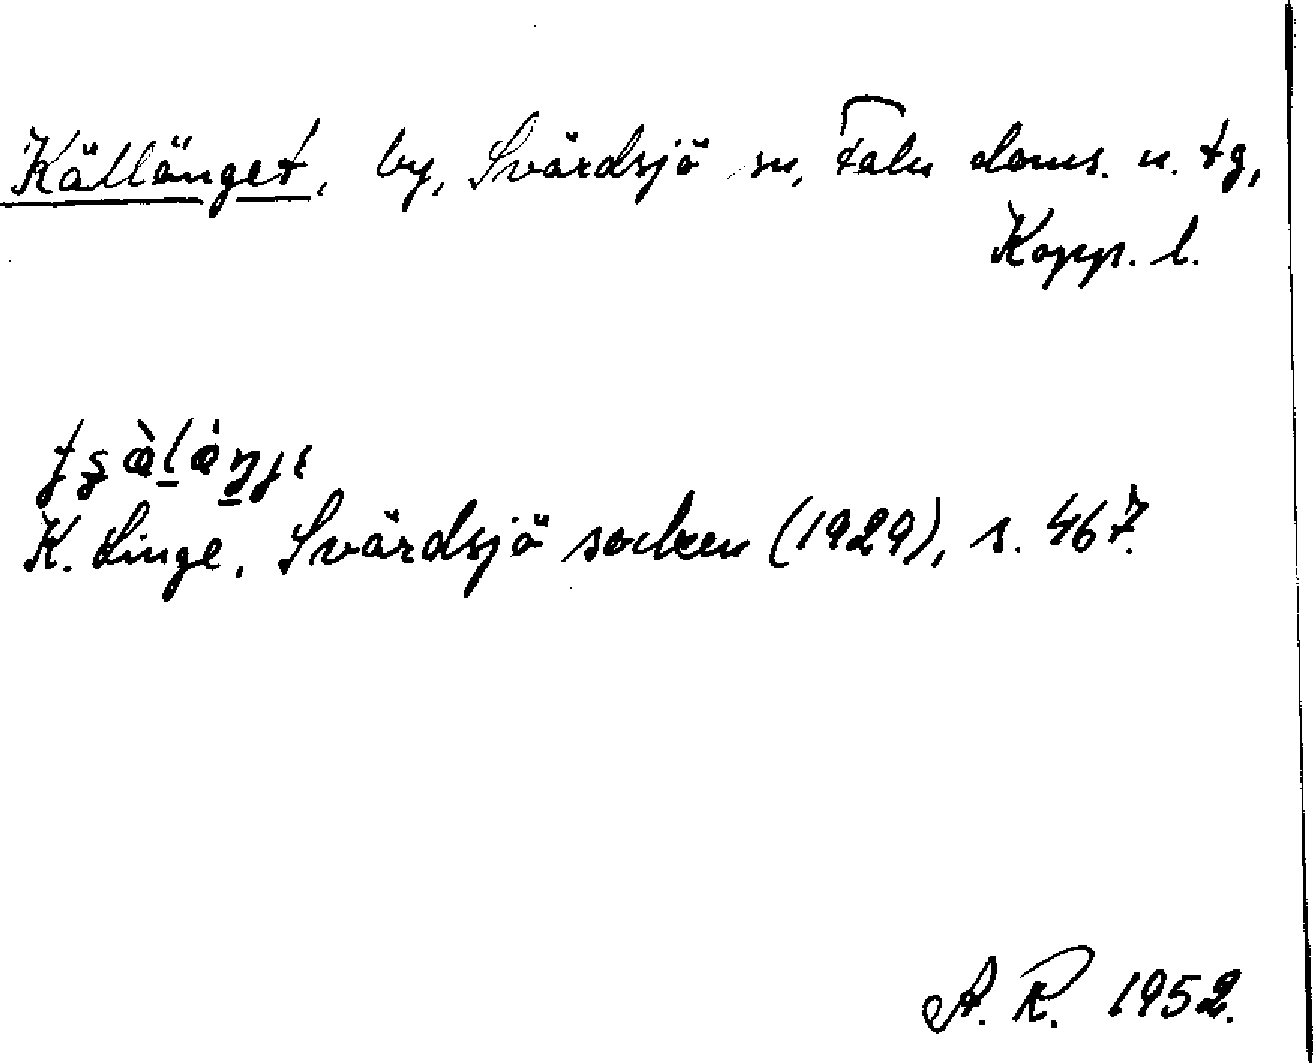 Källänget, by, Svärdsjö sn, Falu doms. n. tg,
Kopp. l.
K. Linge, Svärdsjö socken (1929), s. 467.
A. R. 1952.